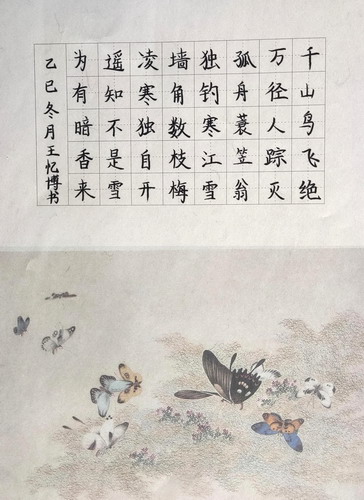 千山鸟飞绝
万径人踪灭
孤舟蓑笠翁
独钓寒江雪
墙角数枝梅
凌寒独自开
遥知不是雪
为有暗香来
乙巳冬月王忆博书